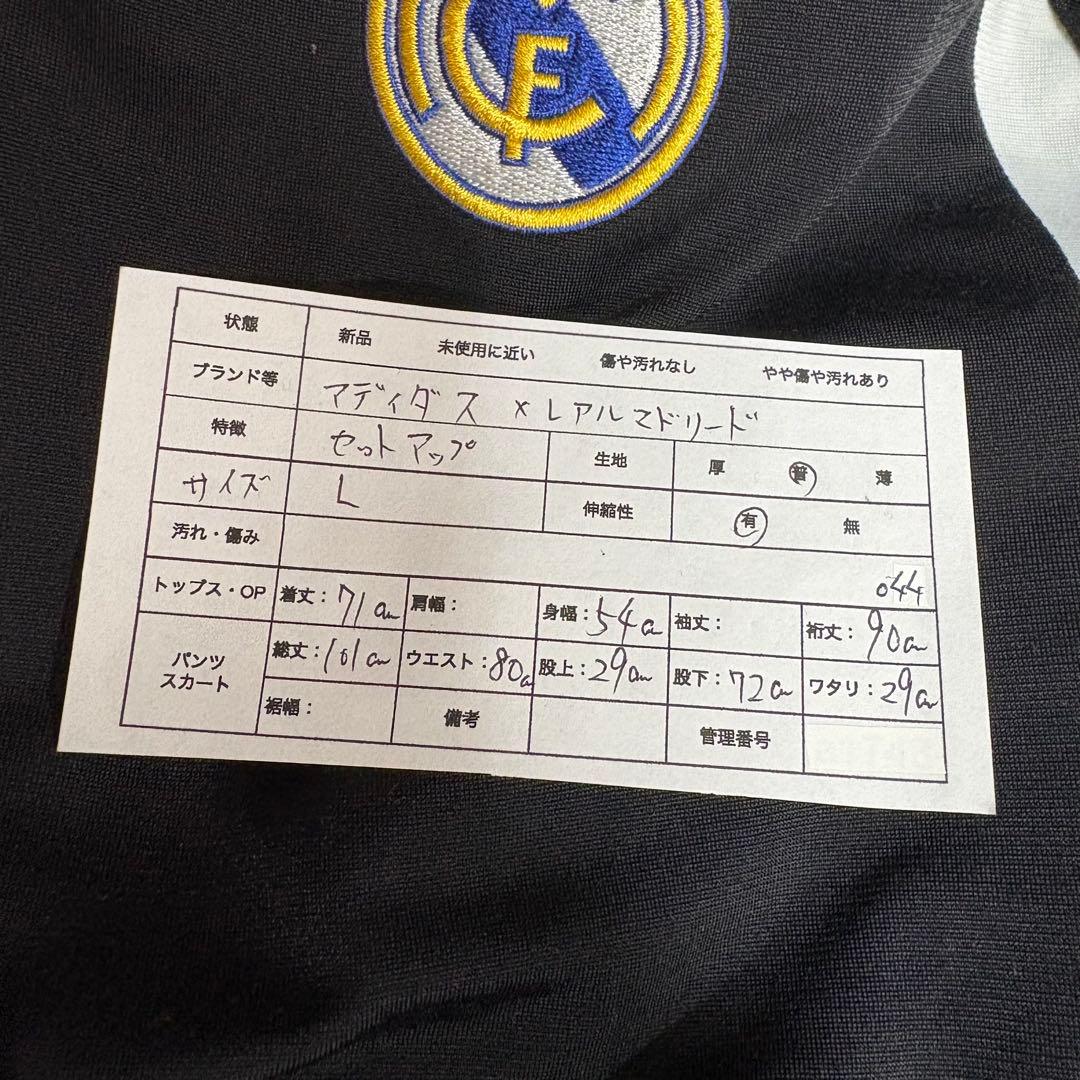 状態 新品 未使用に近い 傷や汚れなし やや傷や汚れあり
ブランド等 アディダス × レアルマドリード
特徴 セットアップ 生地 厚 普 薄
サイズ L 伸縮性 有 無
汚れ・傷み
044
トップス・OP 着丈:71cm 肩幅: 身幅:54cm 袖丈: 裄丈:90cm
パンツ スカート 総丈:101cm ウエスト:80cm 股上:29cm 股下:72cm ワタリ:29cm
裾幅: 備考 管理番号